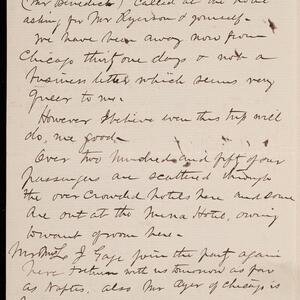 (Mr Benedict) called at the hotel
asking for Mr Ryerson & yourself.
We have been away now from
Chicago thirty one days & not a
business letter which seems very
queer to me.
However I believe even this trip will
do me good.
Over two hundred and fifty of our
passengers are scattered through
the over crowded hotels here and some
are out at the Mena Hotel, owing
to want of room here.
Mr & Mrs L J Gage join the party again
here & return with us tomorrow as far
as Naples, also Mr Ayer of Chicago is